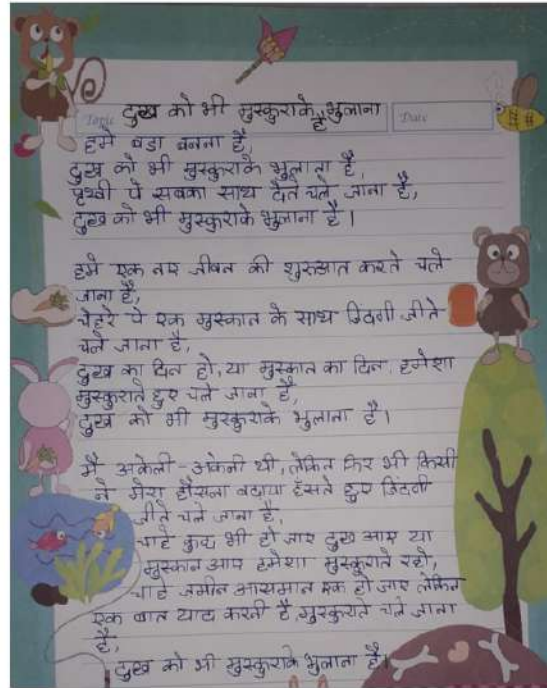 दुख को भी मुस्कुराके भुलाना
है
Topic
Date
हमे बडा बनना है,
दुख को भी मुस्कुराके भुलाना है,
पृथ्वी पे सबका साथ देते चले जाना है,
दुख को भी मुस्कुराके भुलाना है।
हमे एक नए जीवन की शुरुआत करते चले
जाना है,
चेहरे पे एक मुस्कान के साथ जिंदगी जीते
चले जाना है,
दुख का दिन हो, या मुस्कान का दिन, हमेशा
मुस्कुराते हुए चले जाना है,
दुख को भी मुस्कुराके भुलाना है।
मै अकेली-अकेली थी, लेकिन फिर भी किसी
ने मेरा हौसला बढाया हँसते हुए जिंदगी
जीते चले जाना है,
चाहे कुछ भी हो जाए दुख आए या
मुस्कान आए हमेशा मुस्कुराते रहो,
चाहे जमीन आसमान एक हो जाए लेकिन
एक बात याद करनी है, मुस्कुराते चले जाना
है,
दुख को भी मुस्कुराके भुलाना है।